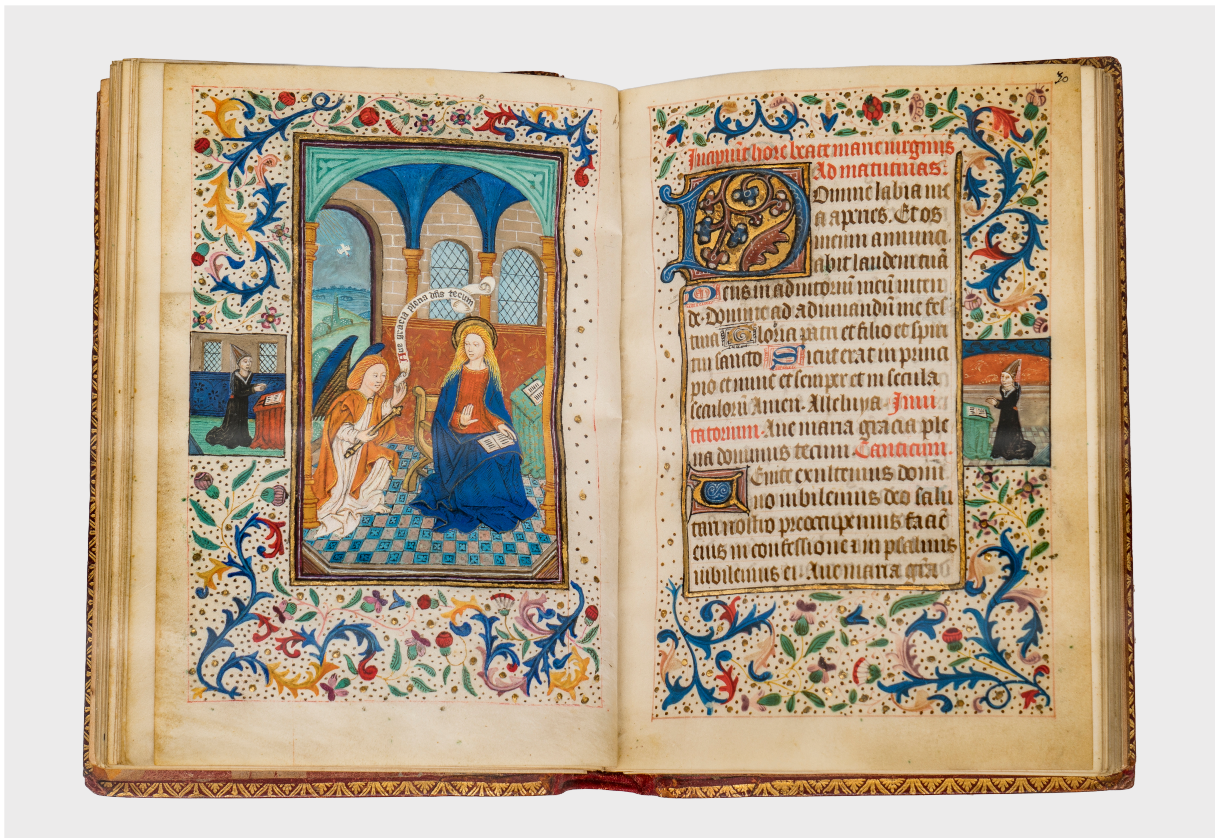 Aue gracia plena dn̄s tecum
30
Incipiūt hore beate marie virginis
Ad matutinas:
Domine labia me
a aperies. Et os
meum annunci
abit laudem tuā
Deus in adiutoriū meū inten
de. Domine ad adiuuandū me fes
tina Gloria patri et filio et spiri
tui sancto Sicut erat in princi
pio et nunc et semper et in secula
seculorū Amen. Alleluya. Inui
tatorium. Aue maria gracia ple
na dominus tecum Canticum.
Venite exultemus domī
no iubilemus deo salu
tari nostro preoccupemus faciē
eius in confessione ⁊ in psalmis
iubilemus ei Aue maria gr̄a